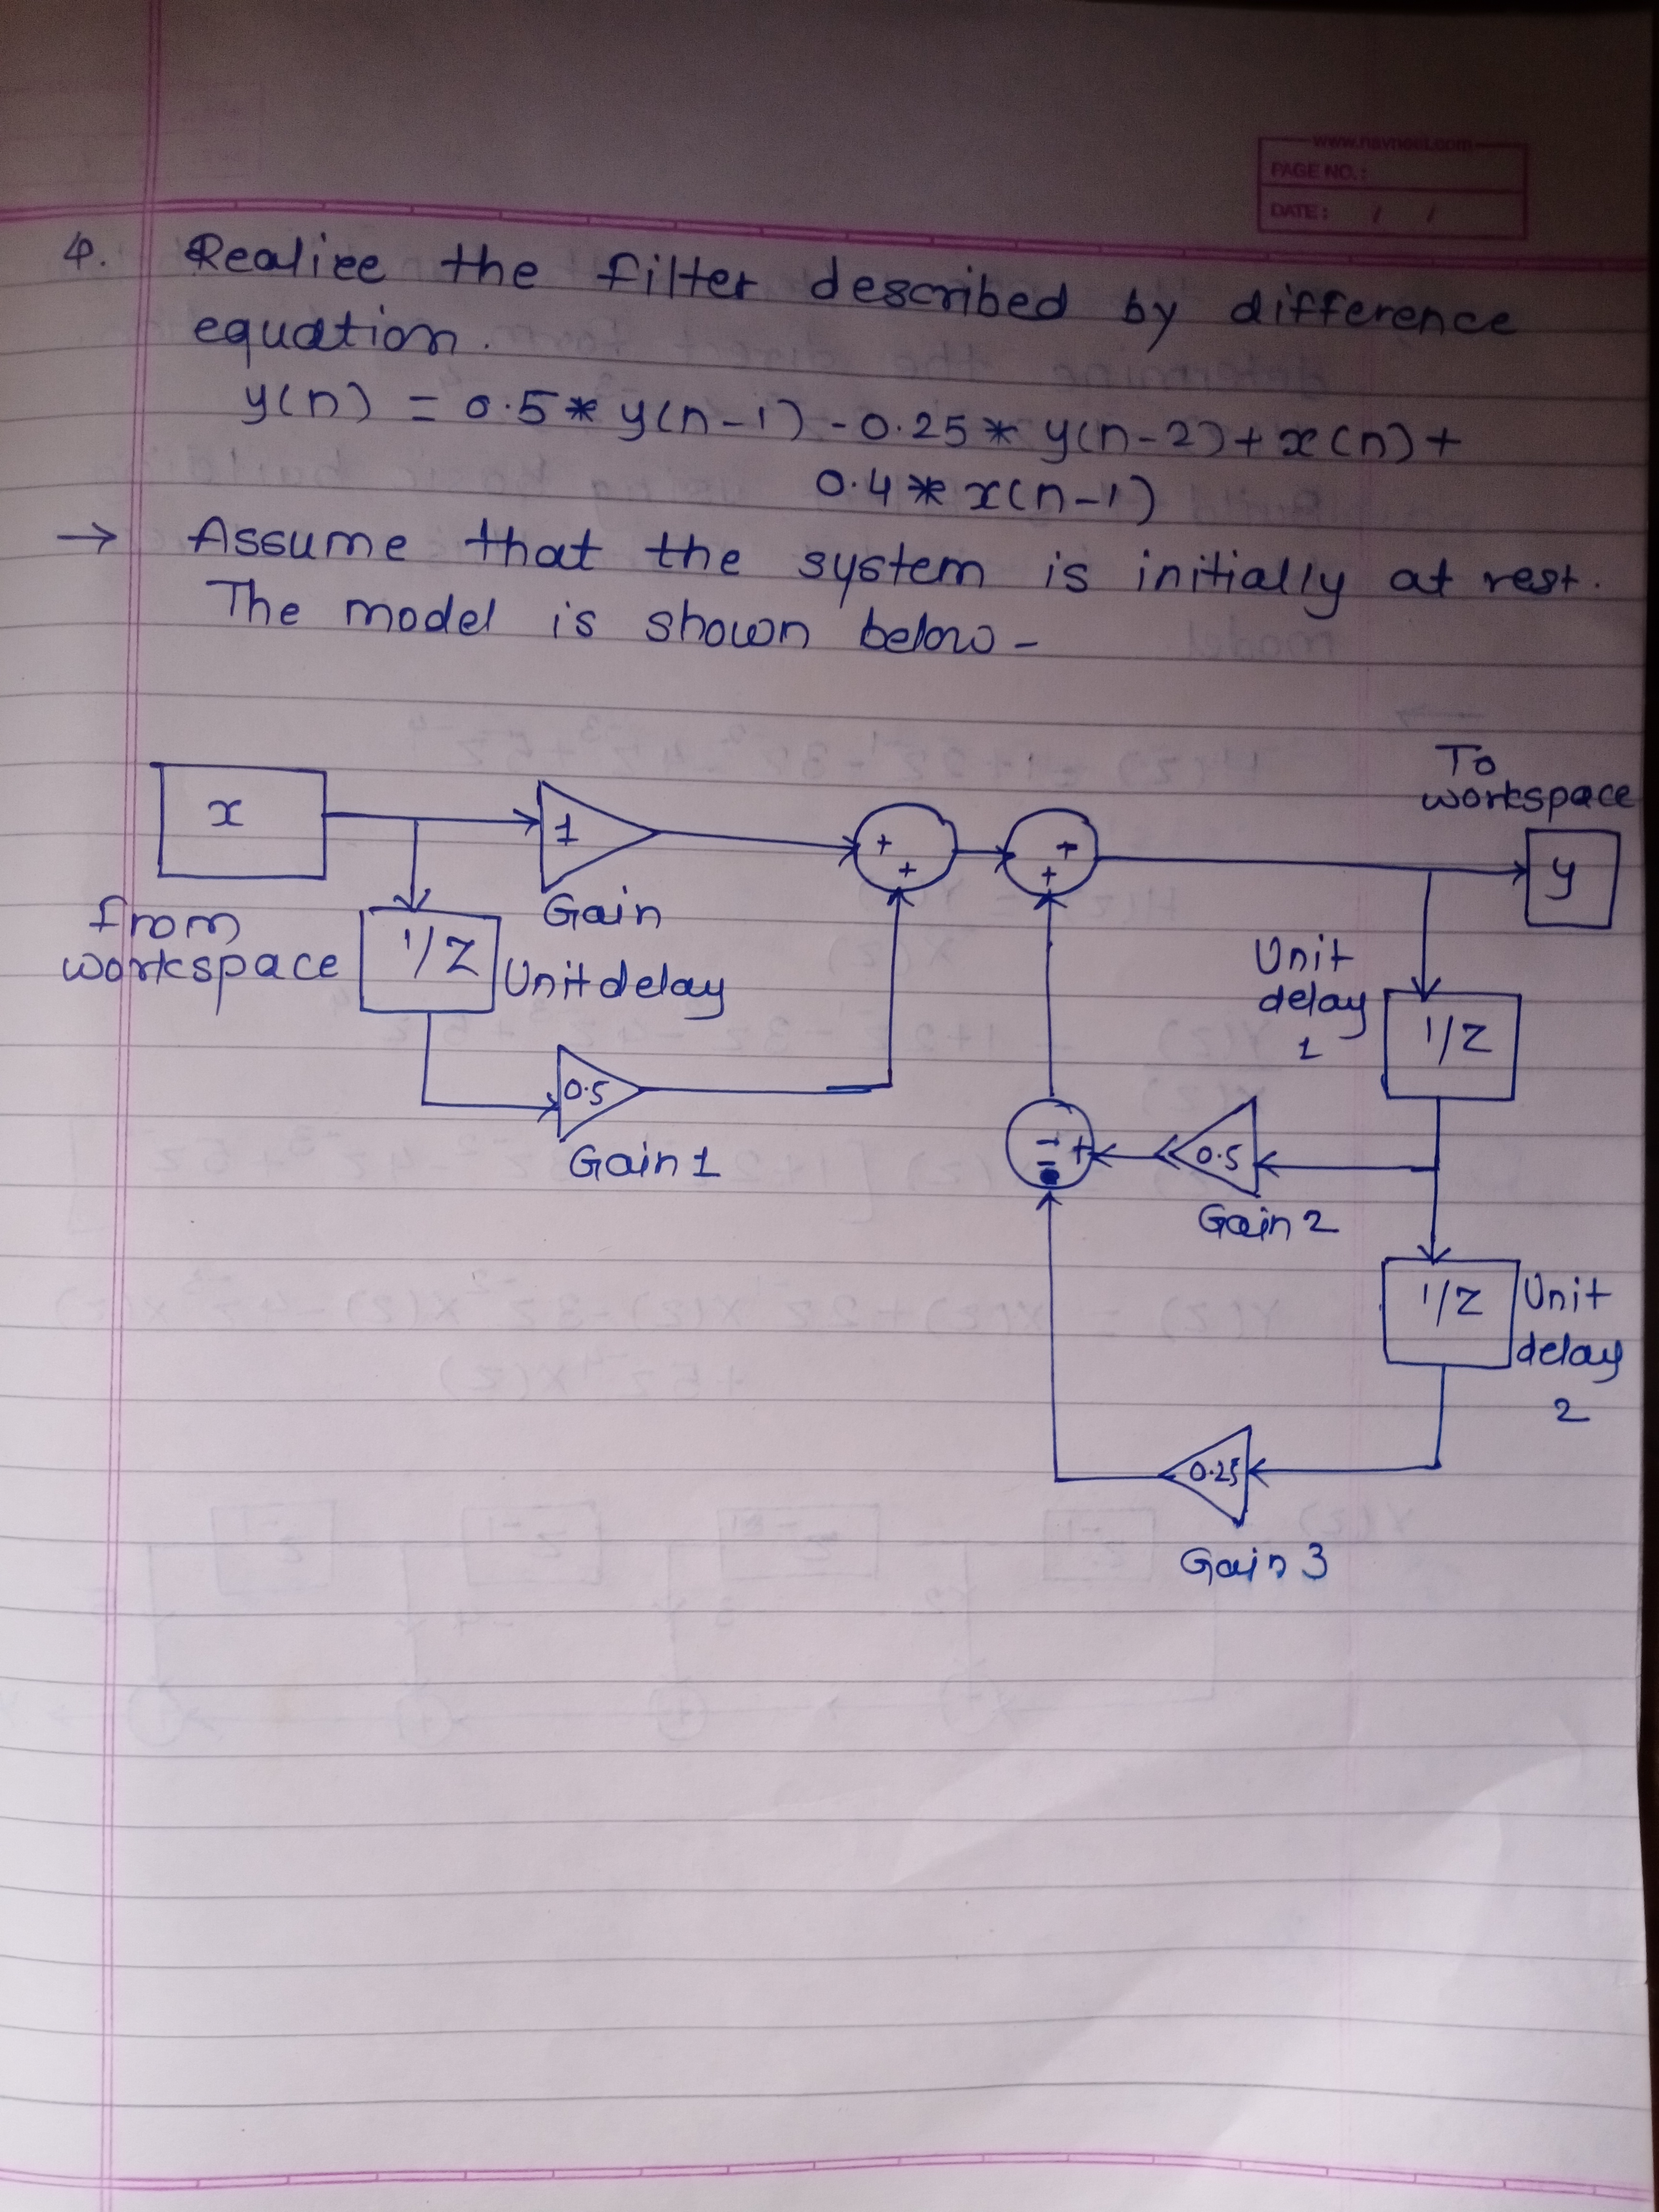 www.navneet.com
PAGE NO.:
DATE: / /
4. Realize the filter described by difference
equation.
y(n) = 0.5* y(n-1) -0.25* y(n-2)+x(n)+
0.4* x(n-1)
→ Assume that the system is initially at rest.
The model is shown below-
To
workspace
x
1
+
+
+
+
y
Gain
from
workspace
1/Z
Unit delay
Unit
delay
1
1/Z
0.5
Gain1
-
+
0.5
Gain 2
1/Z
Unit
delay
2
0.25
Gain 3